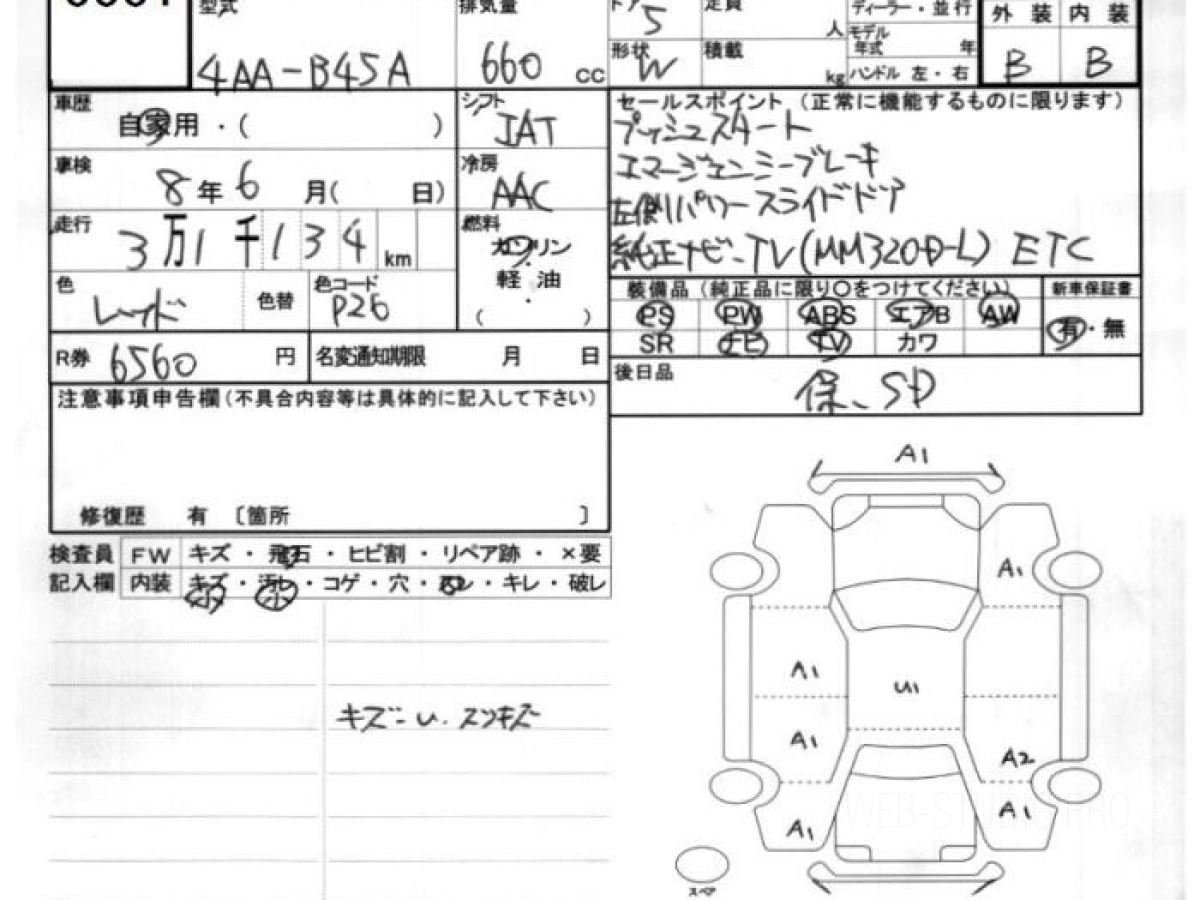 型式 4AA-B45A 排気量 660 cc ドア 5 定員 人 ディーラー・並行 外装 内装
形状 W 積載 kg モデル年式 年 ハンドル 左・右 B B
車歴 自家用・( ) シフト IAT
車検 8年6月( 日) 冷房 AAC
走行 3万1千134km 燃料 ガソリン・軽油・( )
色 レッド 色替 色コード P26
R券 6560円 名変通知期限 月 日
注意事項申告欄(不具合内容等は具体的に記入して下さい)
修復歴 有 〔箇所 〕
セールスポイント (正常に機能するものに限ります)
プッシュスタート
エマージェンシーブレーキ
左側パワースライドドア
純正ナビ-TV(MM320D-L) ETC
装備品(純正品に限り〇をつけてください) 新車保証書
PS PW ABS エアB AW 有・無
SR ナビ TV カワ
後日品 保、SD
検査員 FW キズ・飛石・ヒビ割・リペア跡・×要
記入欄 内装 キズ・汚レ・コゲ・穴・・キレ・破レ
キズ-U.スリキズ
A1
A1
A1 U1
A1 A2
A1 A1
スペア
WEB-STUDIO PRO